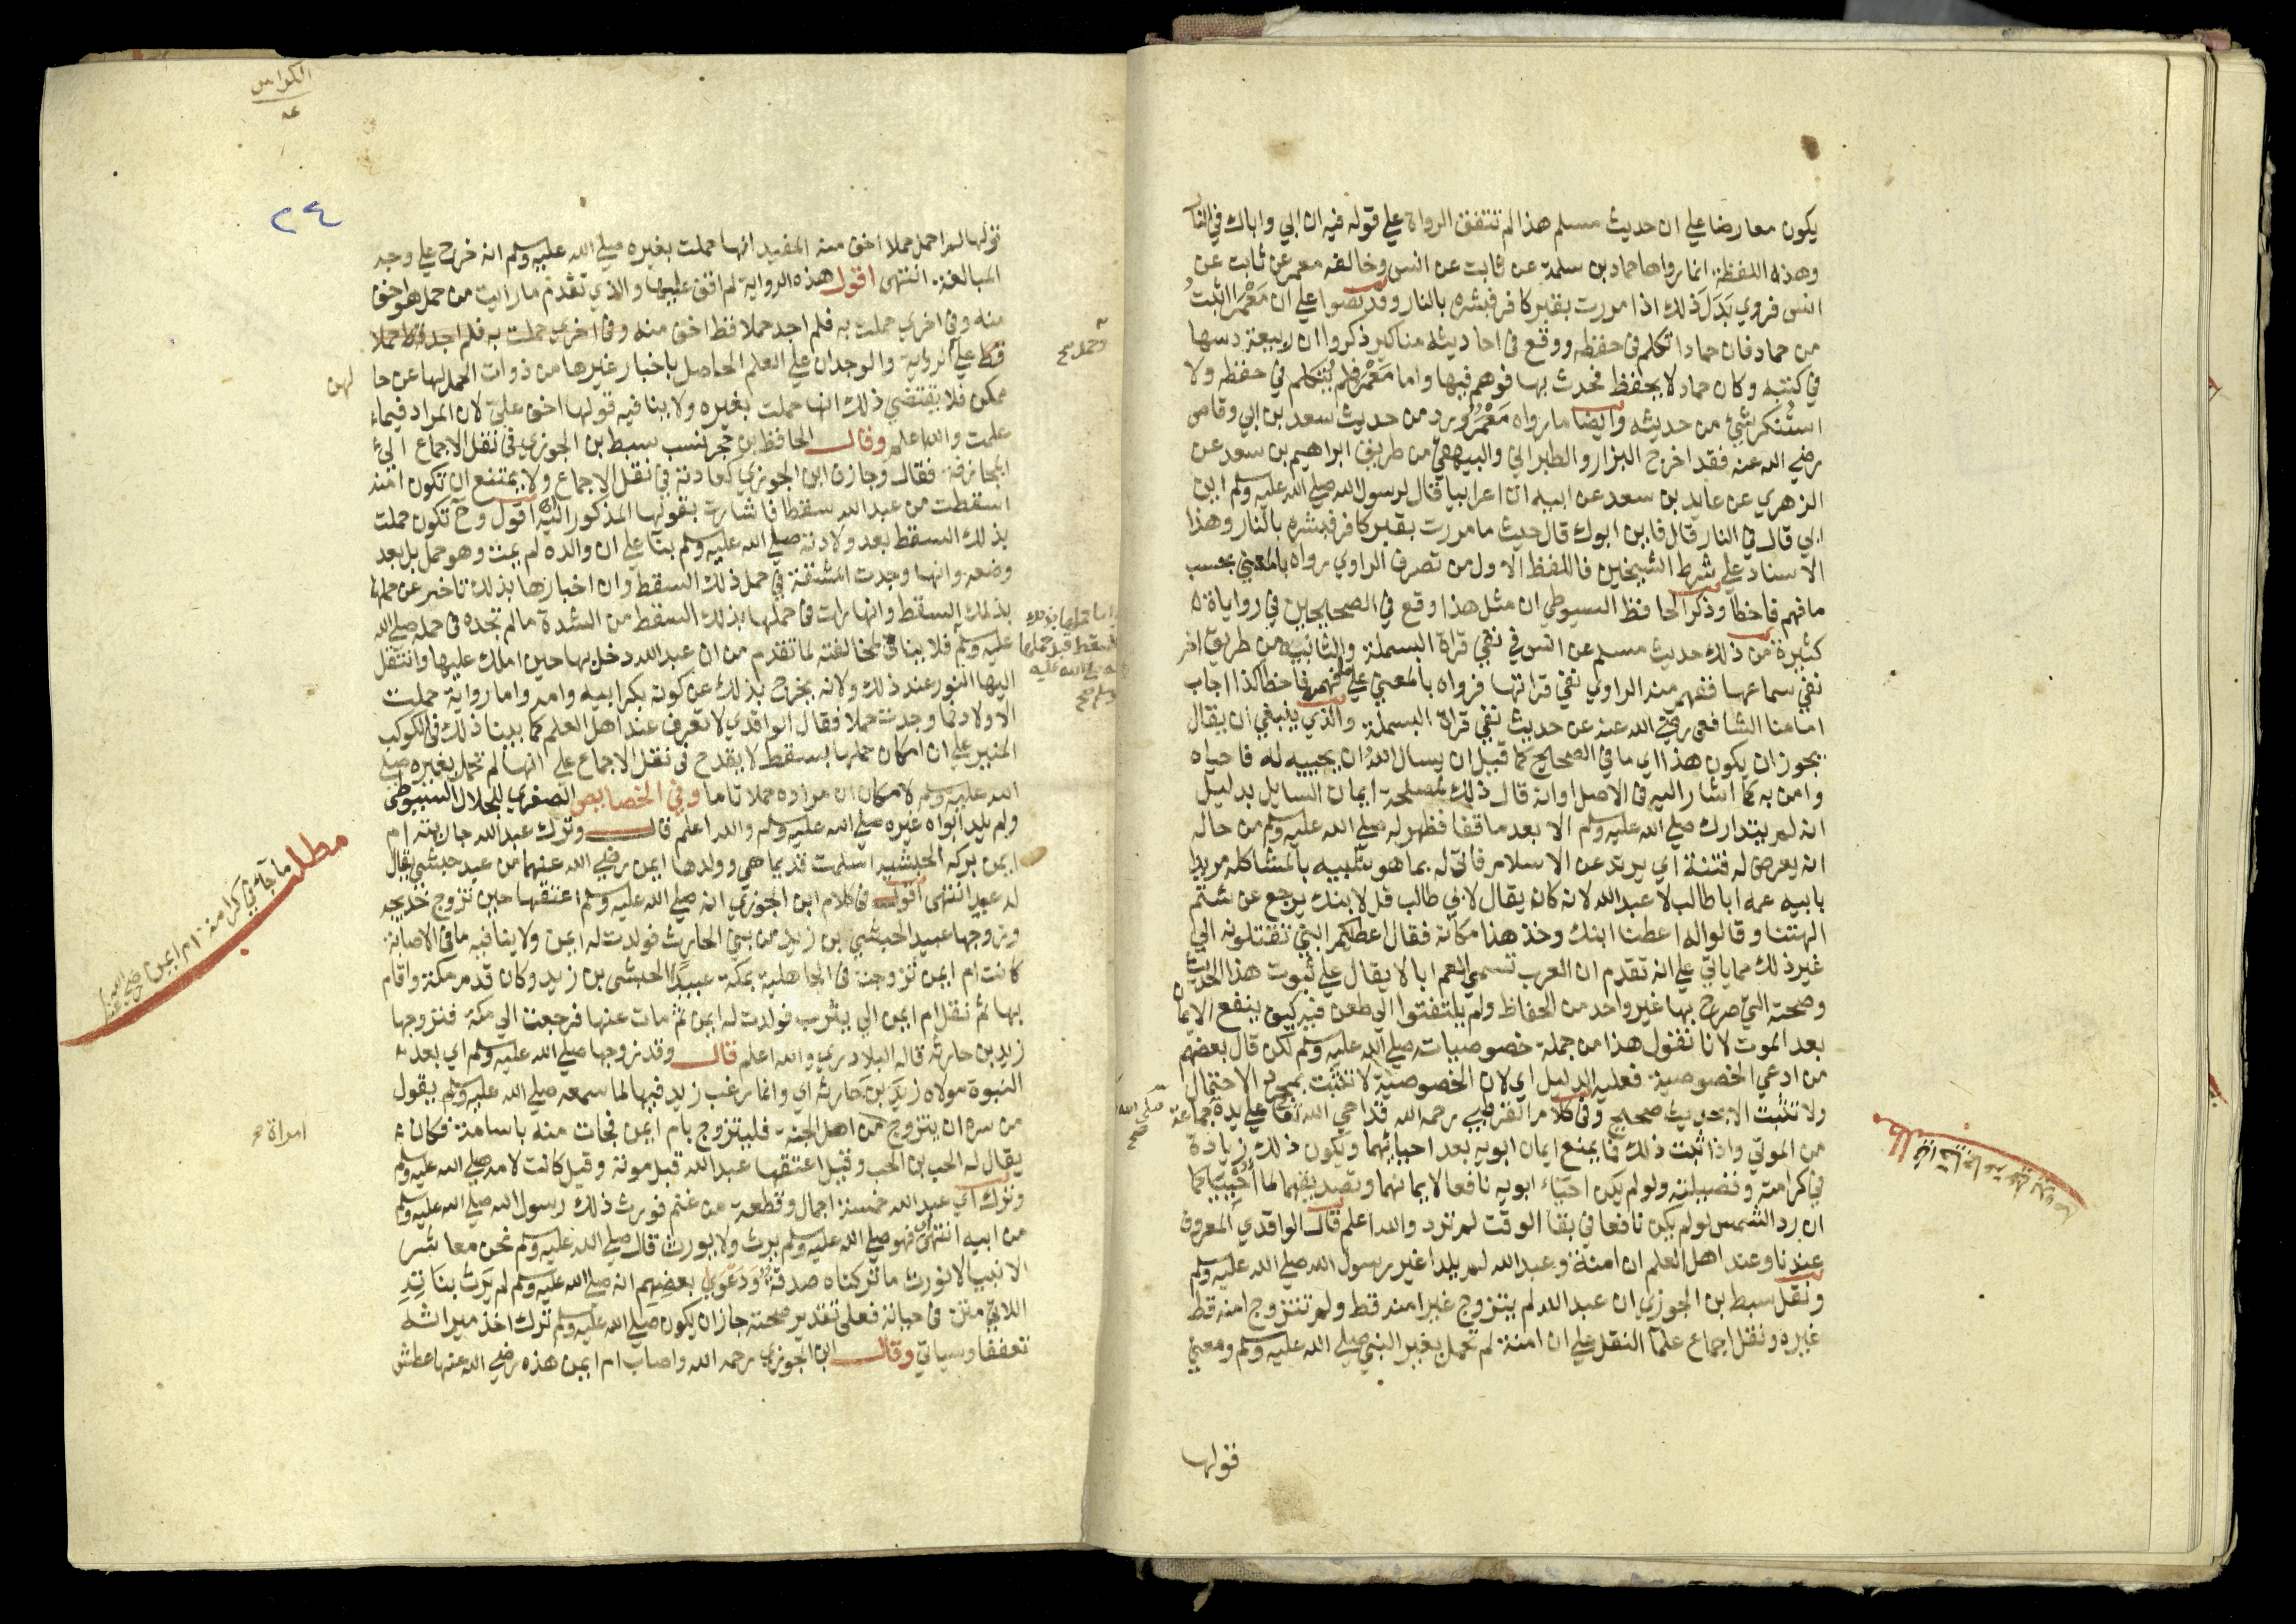 يكون معارضا علي ان حديث مسلم هذا لم تتفق الرواة علي قوله فيه ان ابي واباك في النار
وهذه اللفظة انما رواها حماد بن سلمة عن ثابت عن انس وخالفه معمر عن ثابت عن
انس فروي بَدَلَ ذلك اذا مررت بقبر كافر فبشره بالنار وقد نصوا علي ان مَعْمَرا اثبتُ
من حماد فان حمادا تكلم في حفظه ووقع في احاديثه مناكير ذكروا ان ربيبه دسها
في كتبه وكان حماد لا يحفظ فحدث بها فوهم فيها واما مَعْمَرٌ فلم يُتكلم في حفظه ولا
استُنكر شيء من حديثه وايضا ما رواه مَعْمَرٌ ورد من حديث سعد بن ابي وقاص
رضي الله عنه فقد اخرج البزار والطبراني والبيهقي من طريق ابراهيم بن سعد عن
الزهري عن عابد بن سعد عن ابيه ان اعرابيا قال لرسول الله صلي الله عليه وسلم اين
ابي قال في النار قال فاين ابوك قال حيث ما مررت بقبر كافر فبشره بالنار وهذا
الاسناد علي شرط الشيخين فاللفظ الاول من تصرف الراوي رواه بالمعني بحسب
ما فهم فاخطا وذكر الحافظ السيوطي ان مثل هذا وقع في الصحيحين في روايات
كثيرة من ذلك حديث مسلم عن انس في نفي قراة البسملة والثابت من طريق اخر
نفي سماعها ففهم منه الراوي نفي قراتها فرواه بالمعني علي ما فهمه فاخطا كذا اجاب
امامنا الشافعي رضي الله عنه عن حديث نفي قراة البسملة والذي ينبغي ان يقال
يجوز ان يكون هذا اي ما في الصحيح كما قبل ان يسال اللهَ ان يحييه له فاحياه
وامن به كما اشار اليه في الاصل او انه قال ذلك لمصلحة ايمان السايل بدليل
انه لم يتدارك صلي الله عليه وسلم الا بعد ما قفا فظهر له صلي الله عليه وسلم من حاله
انه يعرض له فتنة اي يرتد عن الاسلام فاتي له بما هو شبيه بالمشاكله مريدا
بابيه عمه ابا طالب لا عبد الله لانه كان يقال لابي طالب قل لابنك يرجع عن شتم
الهتنا وقالوا له اعطنا ابنك وخذ هذا مكانه فقال اعطيكم ابني تقتلونه الي
غير ذلك مما ياتي علي انه تقدم ان العرب تسمي العم ابا لا يقال علي ثبوت هذا الحديث
وصحته التي صرح بها غير واحد من الحفاظ ولم يلتفتوا الي طعن فيه كيف ينفع الايمان
بعد الموت لانا نقول هذا من جملة خصوصياته صلي الله عليه وسلم لكن قال بعضهم
من ادعي الخصوصية فعليه الدليل اي لان الخصوصية لا تثبت بمجرد الاحتمال
ولا تثبت الا بحديث صحيح وفي كلام القرطبي رحمه الله قد احيي الله تعالي علي يده جماعة
صلي الله
صح
من الموتي واذا ثبت ذلك فما يمنع ايمان ابويه بعد احيائهما ويكون ذلك زيادة
في كرامته وفضيلته ولو لم يكن احياء ابويه نافعا لايمانهما وتصديقهما لما أُحْيِيَا كما
ان رد الشمس لو لم يكن نافعا في بقا الوقت لم ترد والله اعلم قال الواقدي المعروف
عندنا وعند اهل العلم ان امنة وعبد الله لم يلدا غير رسول الله صلي الله عليه وسلم
ونقل سبط بن الجوزي ان عبد الله لم يتزوج غير امنه قط ولم تتزوج امنه قط
غيره ونقل اجماع علما النقل علي ان امنة لم تحمل بغير النبي صلي الله عليه وسلم ومعني
قولها
مطلب
الكراس
٢٤
قولها لم احمل حملا اخف منه المفيد انها حملت بغيره صلي الله عليه وسلم انه خرج علي وجه
المبالغة انتهي اقول هذه الرواية لم اقف عليها والذي تقدم ما رايت من حمل هو اخف
منه وفي اخري حملت به فلم اجد حملا قط اخف منه وفي اخري حملت به فلم اجد قط حملا
قط علي الروية والوجدان علي العلم الحاصل باخبار غيرها من ذوات الحمل لها عن حا
لهن
ممكن فلا يقتضي ذلك انها حملت بغيره ولا ينافيه قولها اخف عليّ لان المراد فيما
علمت والله اعلم وقال الحافظ بن حجر نسب سبط بن الجوزي في نقل الاجماع الي
المجازفة فقال وجازف ابن الجوزي كعادته في نقل الاجماع ولا يمتنع ان تكون امنه
اسقطت من عبد الله سقطا فاشارت بقولها المذكور اليه اقول وح تكون حملت
بذلك السقط بعد ولادته صلي الله عليه وسلم بنا علي ان والده لم يمت وهو حمل بل بعد
وضعه وانها وجدت المشقة في حمل ذلك السقط وان اخبارها بذلك تاخر عن حملها
بذلك السقط وانها رات في حملها بذلك السقط من الشدة ما لم تجده في حمله صلي الله
واما حملها بذلك
السقط قبل حملها
به صلي الله عليه
وسلم صح
عليه وسلم فلا ينافي مخالفته لما تقدم من ان عبد الله دخل بها حين املك عليها وانتقل
اليها النور عند ذلك ولانه يخرج بذلك عن كونه بكر ابيه وامه واما رواية حملت
الاولاد فما وجدت حملا فقال الواقدي لا تعرف عند اهل العلم كما بينا ذلك في الكوكب
المنير علي ان امكان حملها بسقط لا يقدح في نقل الاجماع علي انها لم تحمل بغيره صلي
الله عليه وسلم لامكان ان مراده حملا تاما وفي الخصايص الصغري للجلال السيوطي
ولم يلد ابواه غيره صلي الله عليه وسلم والله اعلم قال وترك عبد الله جاريته ام
ايمن بركه الحبشيه اسلمت قديما هي وولدها ايمن رضي الله عنهما من عبد حبشي يقال
له عبيد انتهي اقول في كلام ابن الجوزي انه صلي الله عليه وسلم اعتقها حين تزوج خديجه
وزوجها عبيد الحبشي بن زيد من بني الحارث فولدت له ايمن ولا ينافيه ما في الاصابة
كانت ام ايمن تزوجت في الجاهلية بمكة عبيدًا الحبشي بن زيد وكان قدم مكة واقام
بها ثم نقل ام ايمن الي يثرب فولدت له ايمن ثم مات عنها فرجعت الي مكة فتزوجها
زيد بن حارثه قاله البلاذري والله اعلم قال وقد زوجها صلي الله عليه وسلم اي بعد
النبوة مولاه زيد بن حارثه اي وانما رغب زيد فيها لما سمعه صلي الله عليه وسلم يقول
من سره ان يتزوج من اهل الجنة فليتزوج بام ايمن فجات منه باسامة فكان
امراة صح
يقال له الحب بن الحب وقيل اعتقها عبد الله قبل موته وقيل كانت لامه صلي الله عليه وسلم
وترك اي عبد الله خمسة اجمال وقطعة من غنم فورث ذلك رسول الله صلي الله عليه وسلم
من ابيه انتهي فهو صلي الله عليه وسلم يرث ولا يورث قال صلي الله عليه وسلم نحن معاشر
الانبيا لا نورث ما تركناه صدقةٌ ودعوي بعضهم انه صلي الله عليه وسلم لم يرث بناته
اللاتي متن في حياته فعلي تقدير صحته جاز ان يكون صلي الله عليه وسلم ترك اخذ ميراثه
تعففا وسياتي وقال ابن الجوزي رحمه الله واصاب ام ايمن هذه رضي الله عنها عطش
مطلب
ما جاء في كرامة ام ايمن رضي الله عنها